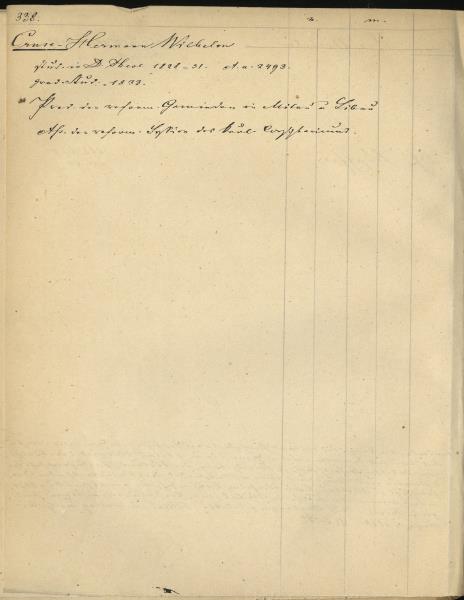 338.
Cruse - Hermann Wilhelm
stud. in D. Theol. 1828-31. A. a. 2493.
grad. Stud. 1833.
Pred. der reform. Gemeinden in Mitau u Libau
der reform. des Kurl. Consistoriums.